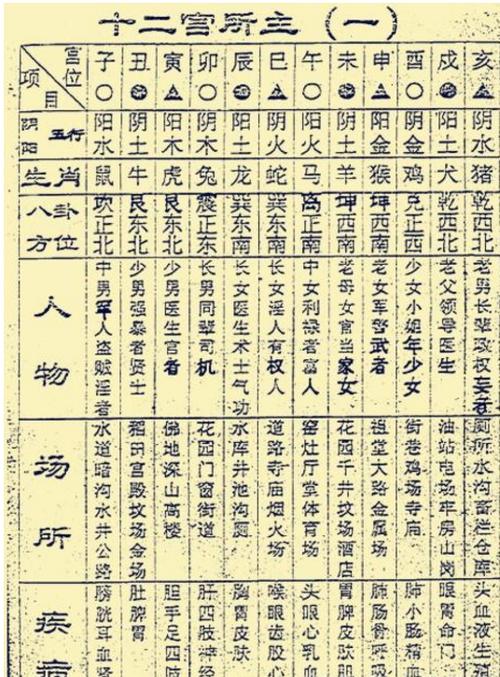 十二宫所主（一）
宫位 项目 子 丑 寅 卯 辰 巳 午 未 申 酉 戌 亥
阴阳五行 阳水 阴土 阳木 阴木 阳土 阴火 阳火 阴土 阳金 阴金 阳土 阴水
生肖 鼠 牛 虎 兔 龙 蛇 马 羊 猴 鸡 犬 猪
八卦方位 坎正北 艮东北 艮东北 震正东 巽东南 巽东南 离正南 坤西南 坤西南 兑正西 乾西北 乾西北
人物
中男军人盗贼淫者
少男强暴者贤士
少男医生官者
长男同辈司机
长女医生术士气功
长女淫人有权人
中女利禄者富人
老母女官当家女
老女军警武者
少女小姐年少女
老父领导医生
老男长辈政权妄者
场所
水道暗沟水井公路
稻田宫殿坟场金场
佛地深山高楼
花园门窗街道
水库井池沟厕
道路寺庙烟火场
窑灶厅堂体育场
花园千井坟场酒店
祖堂大路金属场
街巷鸡场寺庙
油站电场牢房山岗
厕所水沟畜栏仓库
疾病
膀胱耳血肾
肚脾胃
胆手足四肢
肝四肢神经
胸胃皮肤
喉眼齿股心
头眼心乳血
胃脾皮肤胆
肺肠骨呼吸
肺小肠精血
眼胃命门
头血液生殖